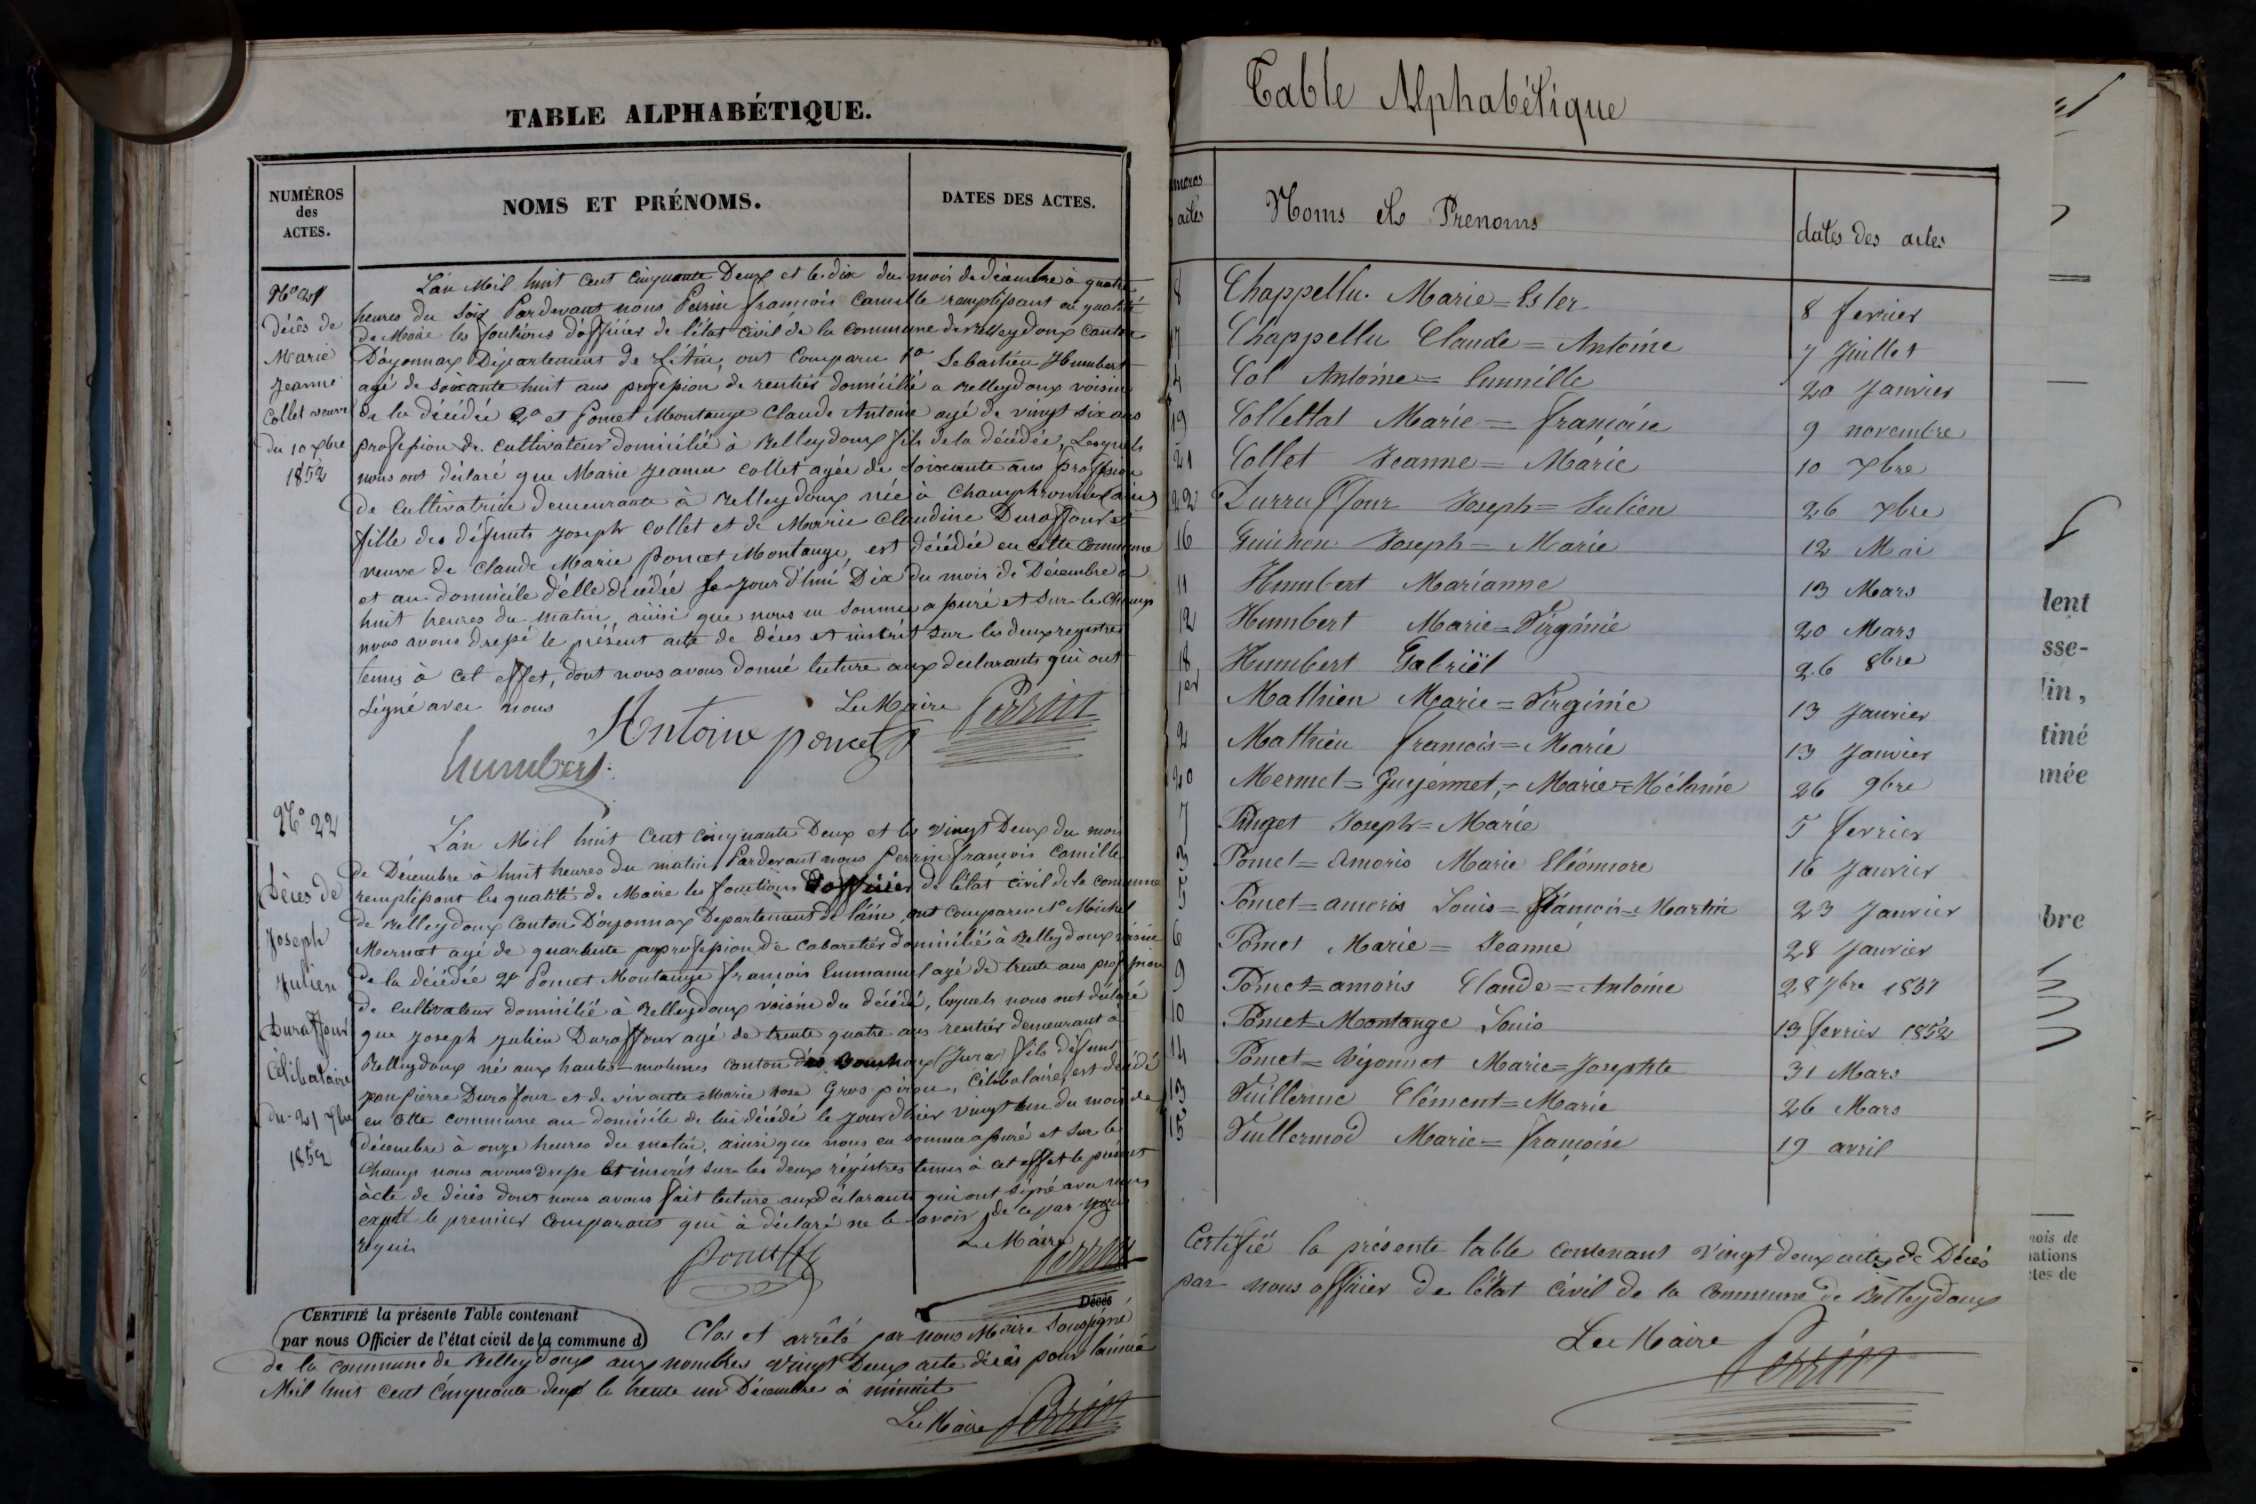 TABLE ALPHABÉTIQUE.
NUMÉROS
des
ACTES.
NOMS ET PRÉNOMS.
DATES DES ACTES.
No 21
décès de
Marie
Jeanne
Collet veuve
du 10 xbre
1852
L'an Mil huit cent cinquante Deux et le dix du mois de décembre à quatre
heures du soir Pardevant nous Perrin françois Camille remplissant en qualité
de Maire les fonctions d'officier de l'état civil de la commune de Belleydoux Canton
D'oyonnax Département de L'Ain, ont Comparu 1o Sebastien Humbert
agé de soixante huit ans profession de rentier domicilié a Belleydoux voisin
de la décédée 2o et Poncet Montange Claude Antoine agé de vingt six ans
profession de cultivateur domicilié à Belleydoux fils de la décédée, Lesquels
nous ont déclaré que Marie Jeanne Collet agée de soixante ans profession
de cultivatrice demeurante à Belleydoux née à Champfromier
fille des défunts Joseph Collet et de Marie Claudine Duraffour et
veuve de Claude Marie Poncet Montange, est décédée en cette commune
et au domicile d'elle décédée le jour d'hui Dix du mois de Décembre à
huit heures du matin, ainsi que nous en sommes assuré et sur le Champ
nous avons dressé le présent acte de décès et inscrit sur les deux registres
tenus à cet effet, dont nous avons donné lecture aux déclarants qui ont
signé avec nous
Le Maire Perrin
Antoine poncet
humbert
No 22
Décès de
Joseph
Julien
Duraffour
Célibataire
du 21 xbre
1852
L'an Mil huit Cent Cinquante Deux et le vingt Deux du mois
de Décembre à huit heures du matin, Pardevant nous Perrin françois Camille
remplissant les qualité de Maire les fonctions d'officier de l'état civil de la commune
de Belleydoux Canton D'oyonnax Departement de l'ain, ont comparu 1o Michel
Mermet agé de quarante profession de cabaretier domicilié à Belleydoux voisin
de la décédée 2o Poncet Montange françois Emmanuel agé de trente ans profession
de cultivateur domicilié à Belleydoux voisin du décédé, lesquels nous ont déclaré
que Joseph Julien Duraffour agé de trente quatre ans rentier demeurant à
Belleydoux né aux hautes-molunes canton des Bouchoux (Jura) fils défunt
jean pierre Duraffour et de vivante Marie rose Gros piron, Célibataire, est décédé
en Cette commune au domicile de lui décédé le jour d'hier vingt un du mois de
décembre à onze heures du matin, ainsi que nous en somme assuré et sur le
Champ nous avons dressé et inscrit sur les deux régistres tenus à cet effet le présent
acte de décès dont nous avons fait lecture aux déclarants qui ont signé avec nous
excepté le premier comparant qui à déclaré ne le savoir de ce par nous
requis
Le Maire
Perrin
Décès
CERTIFIÉ la présente Table contenant
par nous Officier de l'état civil de la commune d
Clos et arrêté par nous Maire soussigné
de la commune de Belleydoux aux nombres vingt Deux acte décès pour l'année
Mil huit cent Cinquante deux le trente un Décembre à minuit
Le Maire Perrin
Table Alphabétique
meros
actes
Noms et Prenoms
dates des actes
8 Chappellu. Marie=Ester 8 fevrier
17 Chappellu Claude=Antoine 7 Juillet
4 Col Antoine=Emmille 20 Janvier
19 Collettat Marie=françoise 9 novembre
21 Collet Jeanne=Marie 10 xbre
22 Durraffour Joseph=Julien 26 xbre
16 Guichon Joseph=Marie 12 Mai
11 Humbert Marianne 13 Mars
12 Humbert Marie=Virginie 20 Mars
18 Humbert Gabriël 26 8bre
1er Mathieu Marie=Virginie 13 Janvier
2 Mathieu francois=Marie 13 Janvier
20 Mermet=Guyennet,=Marie=Mélanie 26 9bre
7 Pinget Joseph=Marie 5 fevrier
3 Poncet=Amoris Marie Eléonnore 16 Janvier
5 Poncet=amoris Louis=framcois=Martin 23 Janvier
6 Poncet Marie=Jeanne 28 Janvier
9 Poncet=amoris Claude=Antoine 28 7bre 1837
10 Poncet=Montange Louis 13 fevrier 1852
14 Poncet=Végonnet Marie=Josephte 31 Mars
13 Vuillerme Clément=Marie 26 Mars
15 Vuillermod Marie=françoise 19 avril
Certifié la présente table contenant vingt deux actes de Décès
par nous officier de l'état civil de la commune de Belleydoux
Le Maire
Perrin
lent
sse-
lin,
tiné
mée
bre
nois de
nations
ctes de